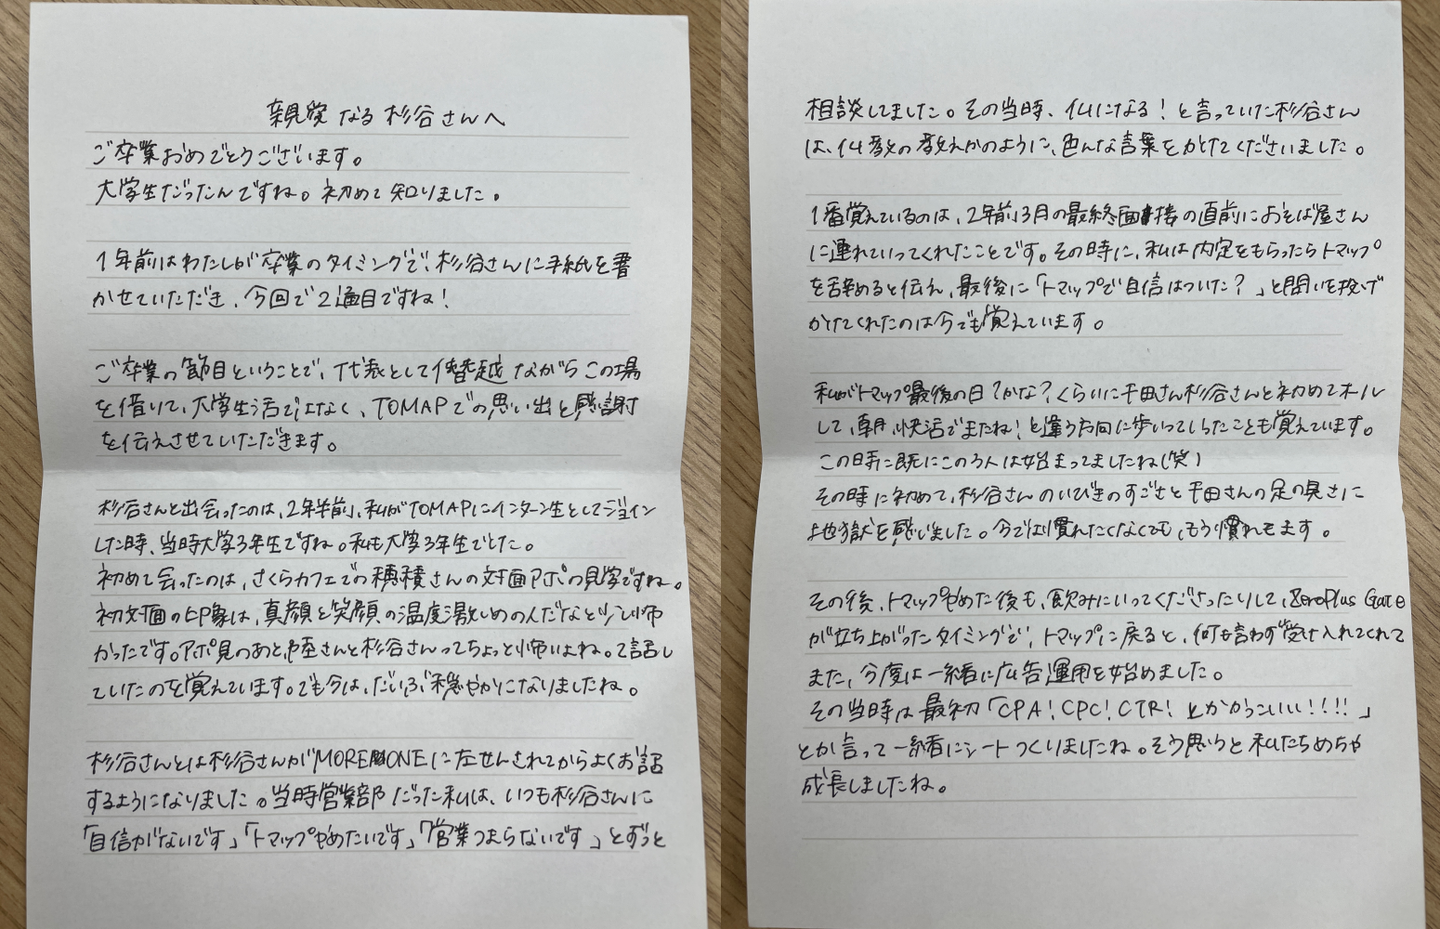 親愛なる杉谷さんへ
ご卒業おめでとうございます。
大学生だったんですね。初めて知りました。
1年前はわたしが卒業のタイミングで、杉谷さんに手紙を書
かせていただき、今回で2通目ですね!
ご卒業の節目ということで、代表として僭越ながらこの場
を借りて、大学生活ではなく、TOMAPでの思い出と感謝
を伝えさせていただきます。
杉谷さんと出会ったのは、2年半前、私がTOMAPにインターン生としてジョイン
した時、当時大学3年生ですね。私も大学3年生でした。
初めて会ったのは、さくらカフェでの穂積さんの対面アポの見学ですね。
初対面の印象は、真顔と笑顔の温度激しめの人だなと少し怖
かったです。アポ見のあと、さんと杉谷さんってちょっと怖いよね。って話し
ていたのを覚えています。でも今は、だいぶ穏やかになりましたね。
杉谷さんとは杉谷さんがMOREONEに左せんされてからよくお話
するようになりました。当時営業部だった私は、いつも杉谷さんに
「自信がないです」「トマップやめたいです」「営業つまらないです」とずっと
相談してました。その当時、仏になる!と言っていた杉谷さん
は、仏教の教えかのように、色んな言葉をかけてくださいました。
1番覚えているのは、2年前3月の最終面接の直前におそば屋さん
に連れていってくれたことです。その時に、私は内定をもらったらトマップ
を辞めると伝え、最後に「トマップで自信はついた?」と問いを投げ
かけてくれたのは今でも覚えています。
私がトマップ最後の日?かな?くらいに平田さん杉谷さんと初めてオール
して、朝、快活でまたね!と違う方向に歩いってしったことも覚えています。
この時に既にこの3人は始まってましたね(笑)
その時に初めて、杉谷さんのいびきのすごさと平田さんの足の臭さに
地獄を感じました。今では慣れたくなくても、もう慣れてます。
その後、トマップやめた後も、飲みにいってくださったりして、ZeroPlus Gate
が立ち上がったタイミングで、トマップに戻ると、何も言わず受け入れてくれて
また、今度は一緒に広告運用を始めました。
その当時は最初「CPA!CPC!CTR!とかかっこいい!!!!」
とか言って一緒にシートつくりましたね。そう思うと私たちめちゃ
成長しましたね。